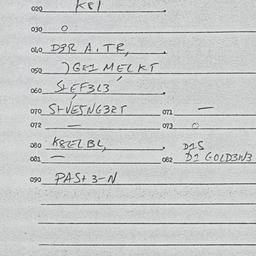 020 K81
030 O
040 D3R A. TR,
050 )GEI MELKT
060 StEF3L3
070 StVE5NG32T 071 —
072 — 073 O
080 K8ELBL, D25
081 — 082 D2 GOLD3N3
090 PASt3-N